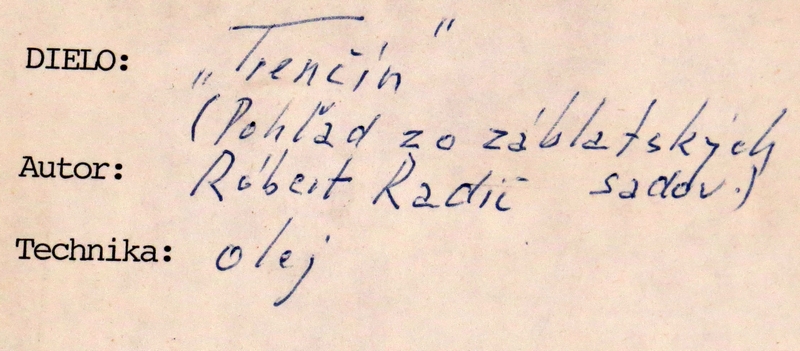 DIELO: „Trenčín"
(Pohľad zo záblatských
Autor: Róbert Radič sadov.)
Technika: olej